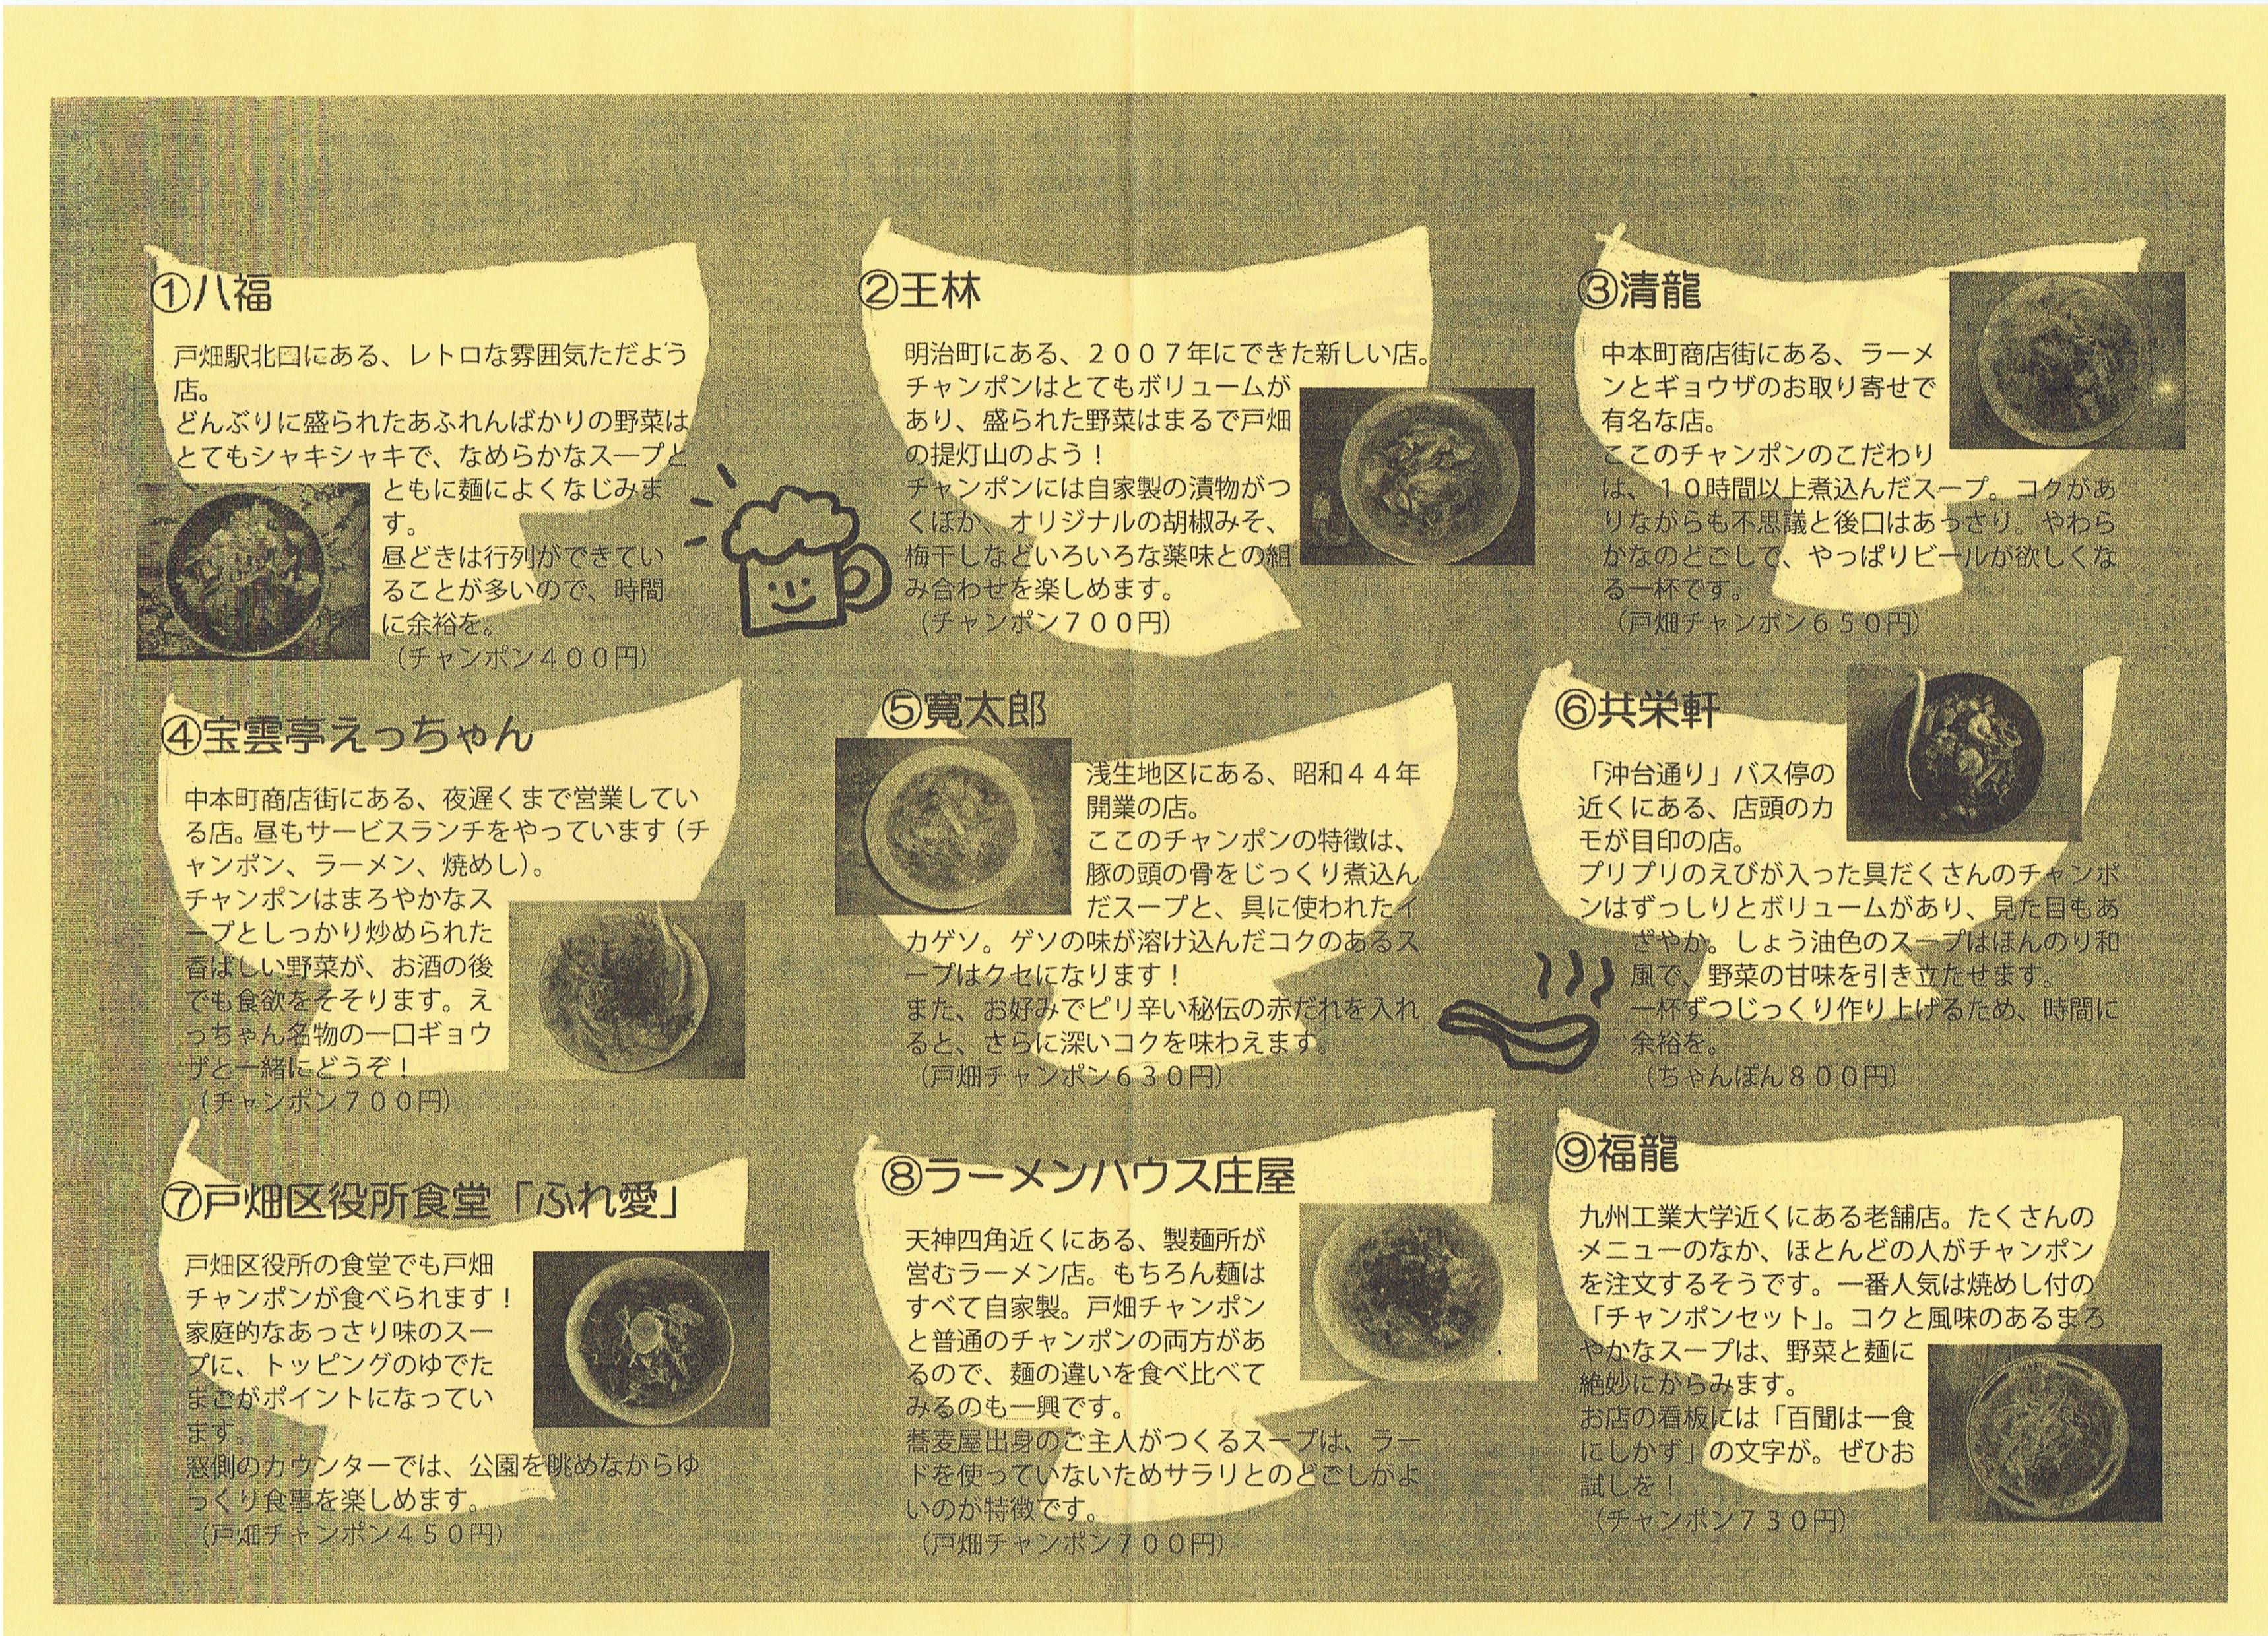 ①八福
戸畑駅北口にある、レトロな雰囲気ただよう
店。
どんぶりに盛られたあふれんばかりの野菜は
とてもシャキシャキで、なめらかなスープと
ともに麺によくなじみま
す。
昼どきは行列ができてい
ることが多いので、時間
に余裕を。
（チャンポン４００円）
②王林
明治町にある、２００７年にできた新しい店。
チャンポンはとてもボリュームが
あり、盛られた野菜はまるで戸畑
の提灯山のよう！
チャンポンには自家製の漬物がつ
くほか、オリジナルの胡椒みそ、
梅干しなどいろいろな薬味との組
み合わせを楽しめます。
（チャンポン７００円）
③清龍
中本町商店街にある、ラーメ
ンとギョウザのお取り寄せで
有名な店。
ここのチャンポンのこだわり
は、１０時間以上煮込んだスープ。コクがあ
りながらも不思議と後口はあっさり。やわら
かなのどごしで、やっぱりビールが欲しくな
る一杯です。
（戸畑チャンポン６５０円）
④宝雲亭えっちゃん
中本町商店街にある、夜遅くまで営業してい
る店。昼もサービスランチをやっています（チ
ャンポン、ラーメン、焼めし）。
チャンポンはまろやかなス
ープとしっかり炒められた
香ばしい野菜が、お酒の後
でも食欲をそそります。え
っちゃん名物の一口ギョウ
ザと一緒にどうぞ！
（チャンポン７００円）
⑤寛太郎
浅生地区にある、昭和４４年
開業の店。
ここのチャンポンの特徴は、
豚の頭の骨をじっくり煮込ん
だスープと、具に使われたイ
カゲソ。ゲソの味が溶け込んだコクのあるス
ープはクセになります！
また、お好みでピリ辛い秘伝の赤だれを入れ
ると、さらに深いコクを味わえます。
（戸畑チャンポン６３０円）
⑥共栄軒
「沖台通り」バス停の
近くにある、店頭のカ
モが目印の店。
プリプリのえびが入った具だくさんのチャンポ
ンはずっしりとボリュームがあり、見た目もあ
ざやか。しょう油色のスープはほんのり和
風で、野菜の甘味を引き立たせます。
一杯ずつじっくり作り上げるため、時間に
余裕を。
（ちゃんぽん８００円）
⑦戸畑区役所食堂「ふれ愛」
戸畑区役所の食堂でも戸畑
チャンポンが食べられます！
家庭的なあっさり味のスー
プに、トッピングのゆでた
まごがポイントになってい
ます。
窓側のカウンターでは、公園を眺めながらゆ
っくり食事を楽しめます。
（戸畑チャンポン４５０円）
⑧ラーメンハウス庄屋
天神四角近くにある、製麺所が
営むラーメン店。もちろん麺は
すべて自家製。戸畑チャンポン
と普通のチャンポンの両方があ
るので、麺の違いを食べ比べて
みるのも一興です。
蕎麦屋出身のご主人がつくるスープは、ラー
ドを使っていないためサラリとのどごしがよ
いのが特徴です。
（戸畑チャンポン７００円）
⑨福龍
九州工業大学近くにある老舗店。たくさんの
メニューのなか、ほとんどの人がチャンポン
を注文するそうです。一番人気は焼めし付の
「チャンポンセット」。コクと風味のあるまろ
やかなスープは、野菜と麺に
絶妙にからみます。
お店の看板には「百聞は一食
にしかず」の文字が。ぜひお
試しを！
（チャンポン７３０円）